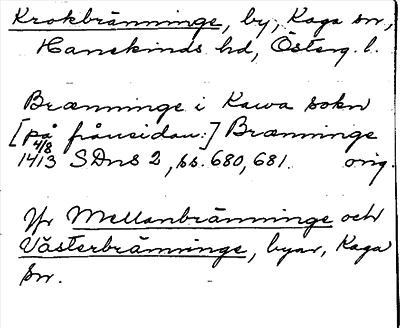 Krokbränninge, by, Kaga sn,
Hanekinds hd, Österg. l.
Brænninge i Kawa sokn
[på frånsidan:] Brænninge
4/8
1413 SDns 2, ss. 680, 681. orig.
Jfr Mellanbränninge och
Västerbränninge, byar, Kaga
sn.